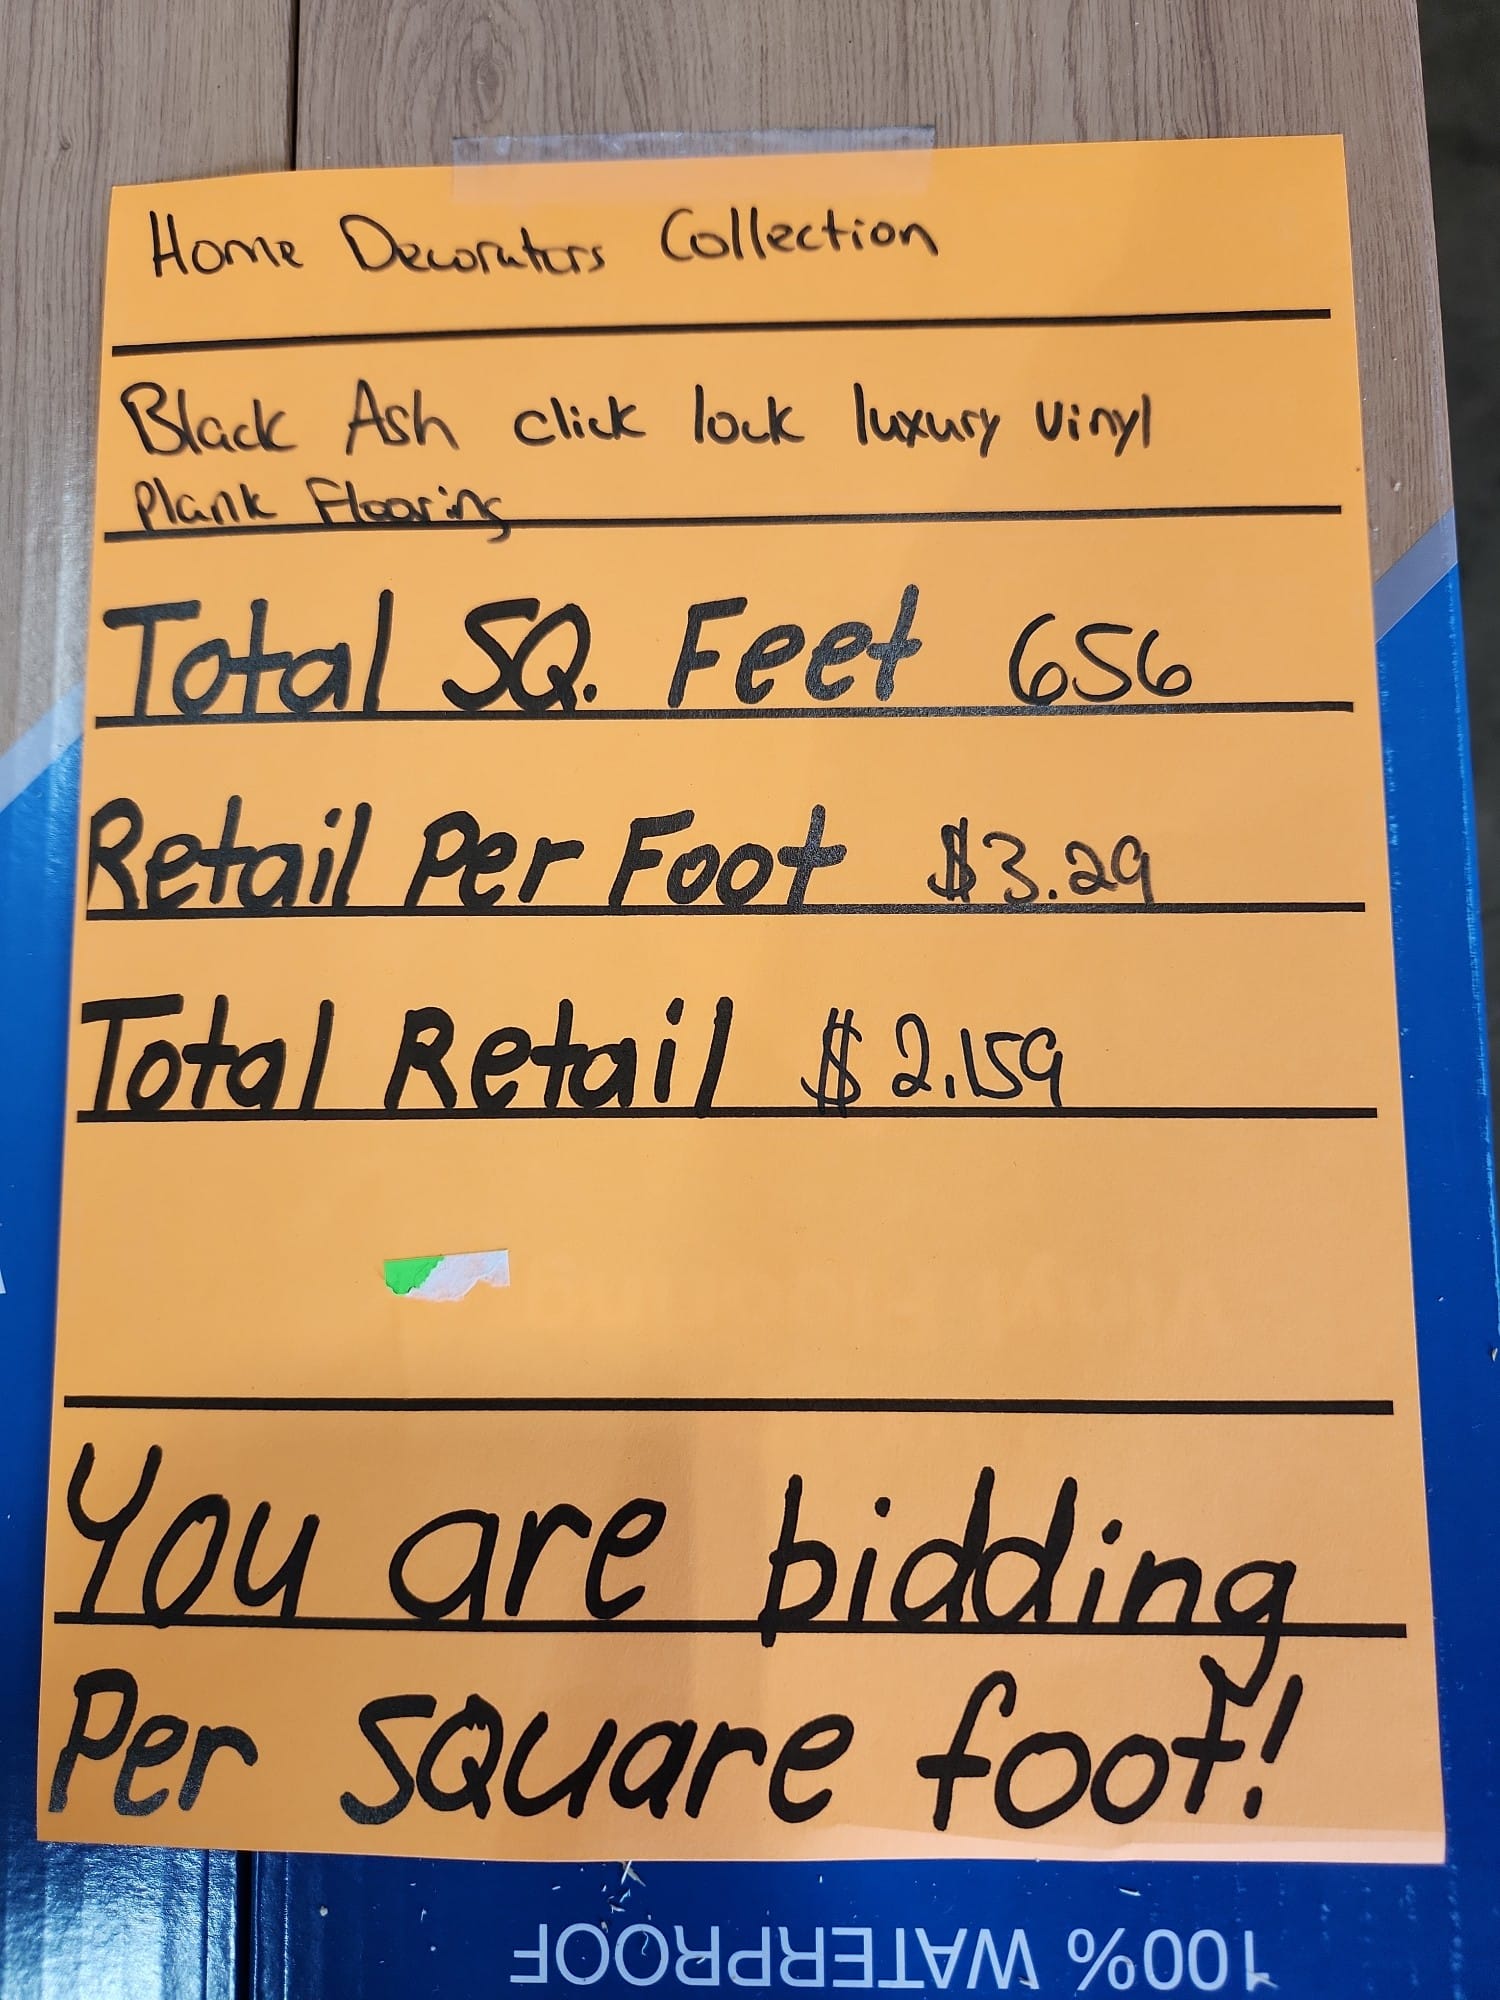 Home Decorators Collection
Black Ash click lock luxury vinyl
Plank Flooring
Total SQ. Feet 656
Retail Per Foot $3.29
Total Retail $2,159
You are bidding
Per square foot!
100% WATERPROOF